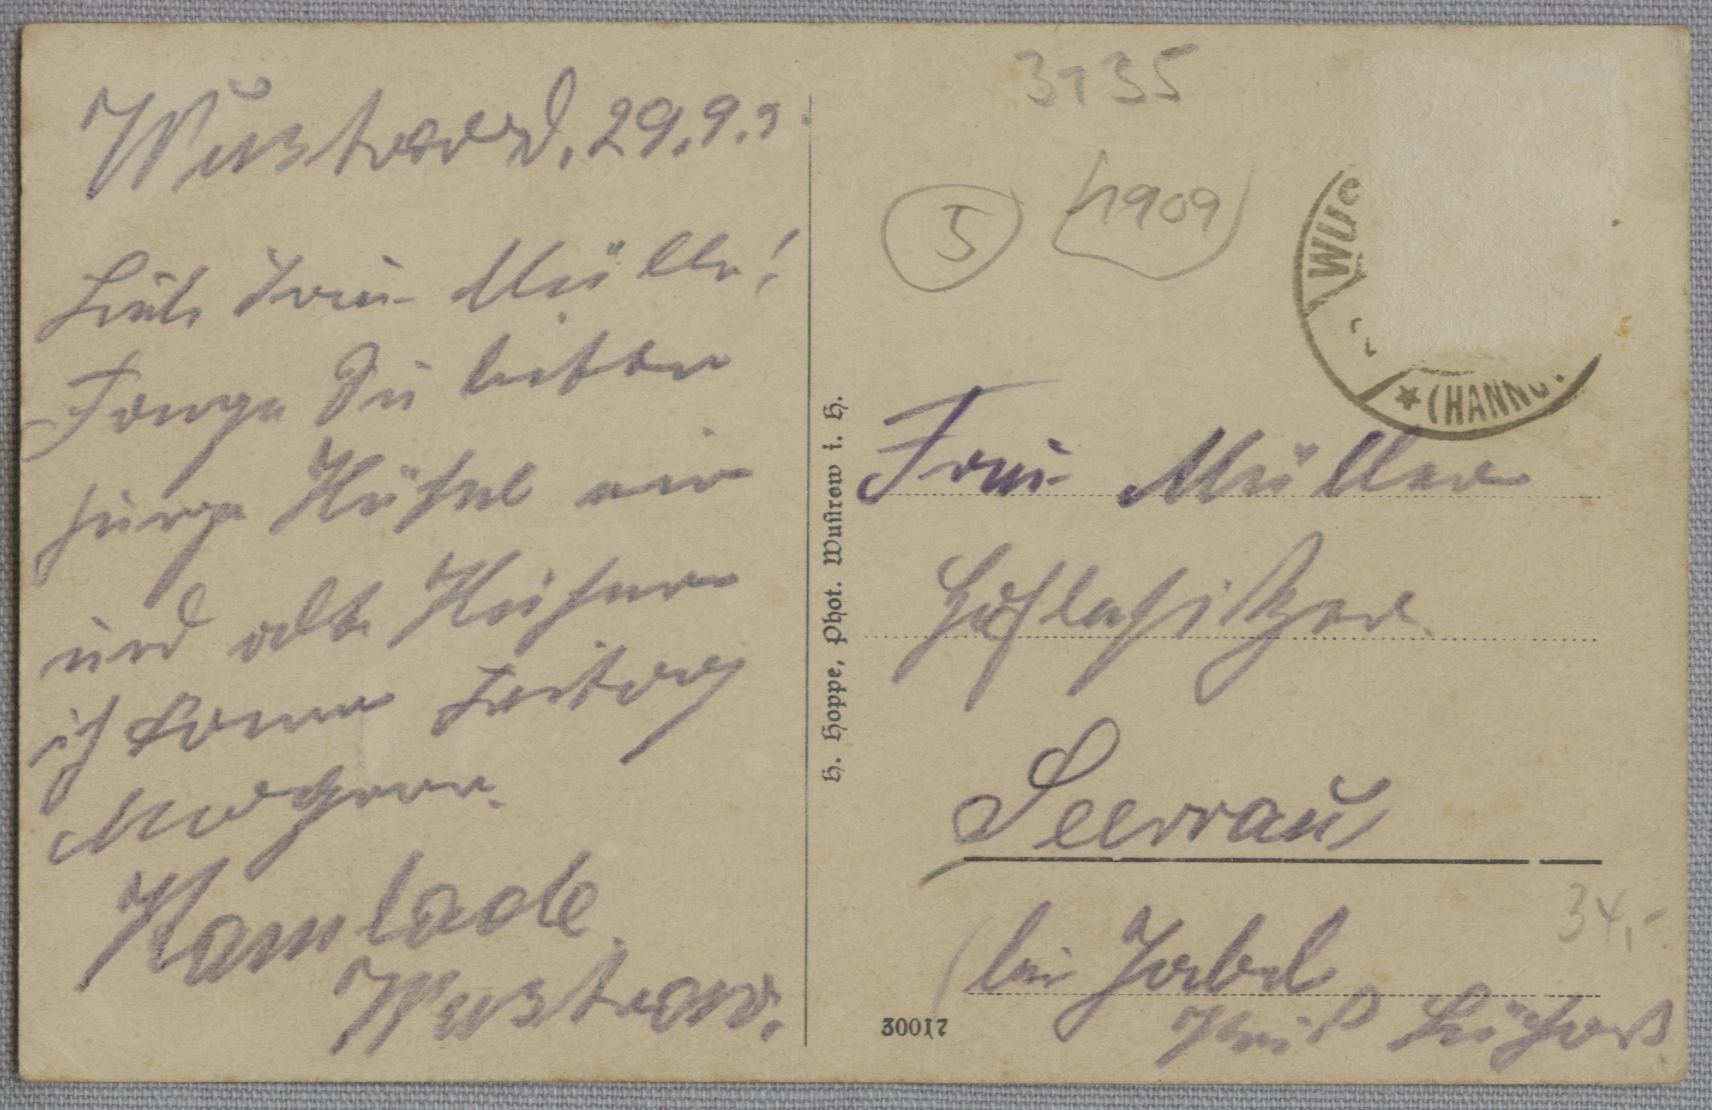 Wustrow d. 29.9.9.
Liebe Frau Müller!
Fange Sie bitte
junge Hühner ein
und alte Hühner
ich komme Freitag
Morgen.
Wustrow.
H. Hoppe, Phot. Wustrow i. H.
3135
5
1909
WUS
(HANNO.
Frau Müller
Hofbesitzer.
Seerau
bei Jabel
Kreis Lüchow
34,-
30017